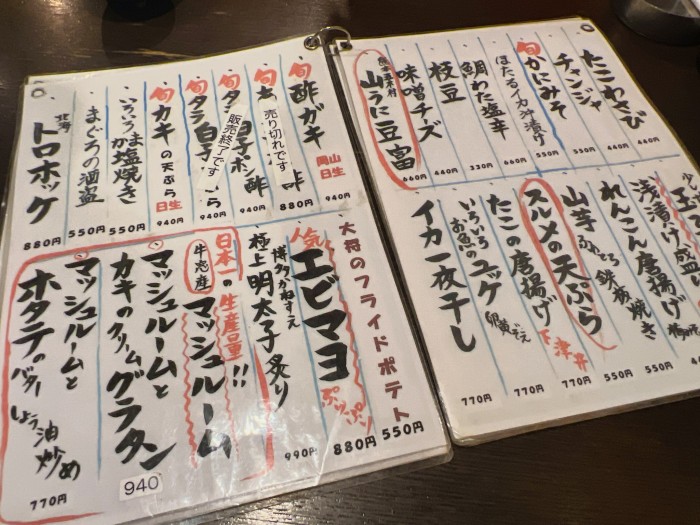 たこわさび
440円
チャンジャ
440円
旬かにみそ
550円
ほたるイカ沖漬け
550円
鯛わた塩辛
330円
枝豆
440円
味噌チーズ
440円
熊本五木村
山うに豆富
660円
浅漬け盛
れんこん唐揚げ
550円
山芋ふわとろ鉄板焼き
550円
スルメの天ぷら
770円
下津井
たこの唐揚げ
770円
いろいろお魚のユッケ
卵黄ぞえ
イカ一夜干し
770円
旬酢ガキ
岡山日生
940円
売り切れです
酢
880円
旬タラ白子ポン酢
940円
販売終了です
旬タラ白子
940円
旬カキの天ぷら
日生
940円
いろいろかま塩焼き
550円
まぐろの酒盗
550円
北海
トロホッケ
880円
大将のフライドポテト
550円
人気エビマヨ
ぷりっぷり
880円
博多かねすえ
極上明太子炙り
990円
日本一の生産量!!
牛窓産
マッシュルーム
マッシュルームと
カキのクリームグラタン
940
マッシュルームと
ホタテのバターしょう油炒め
770円